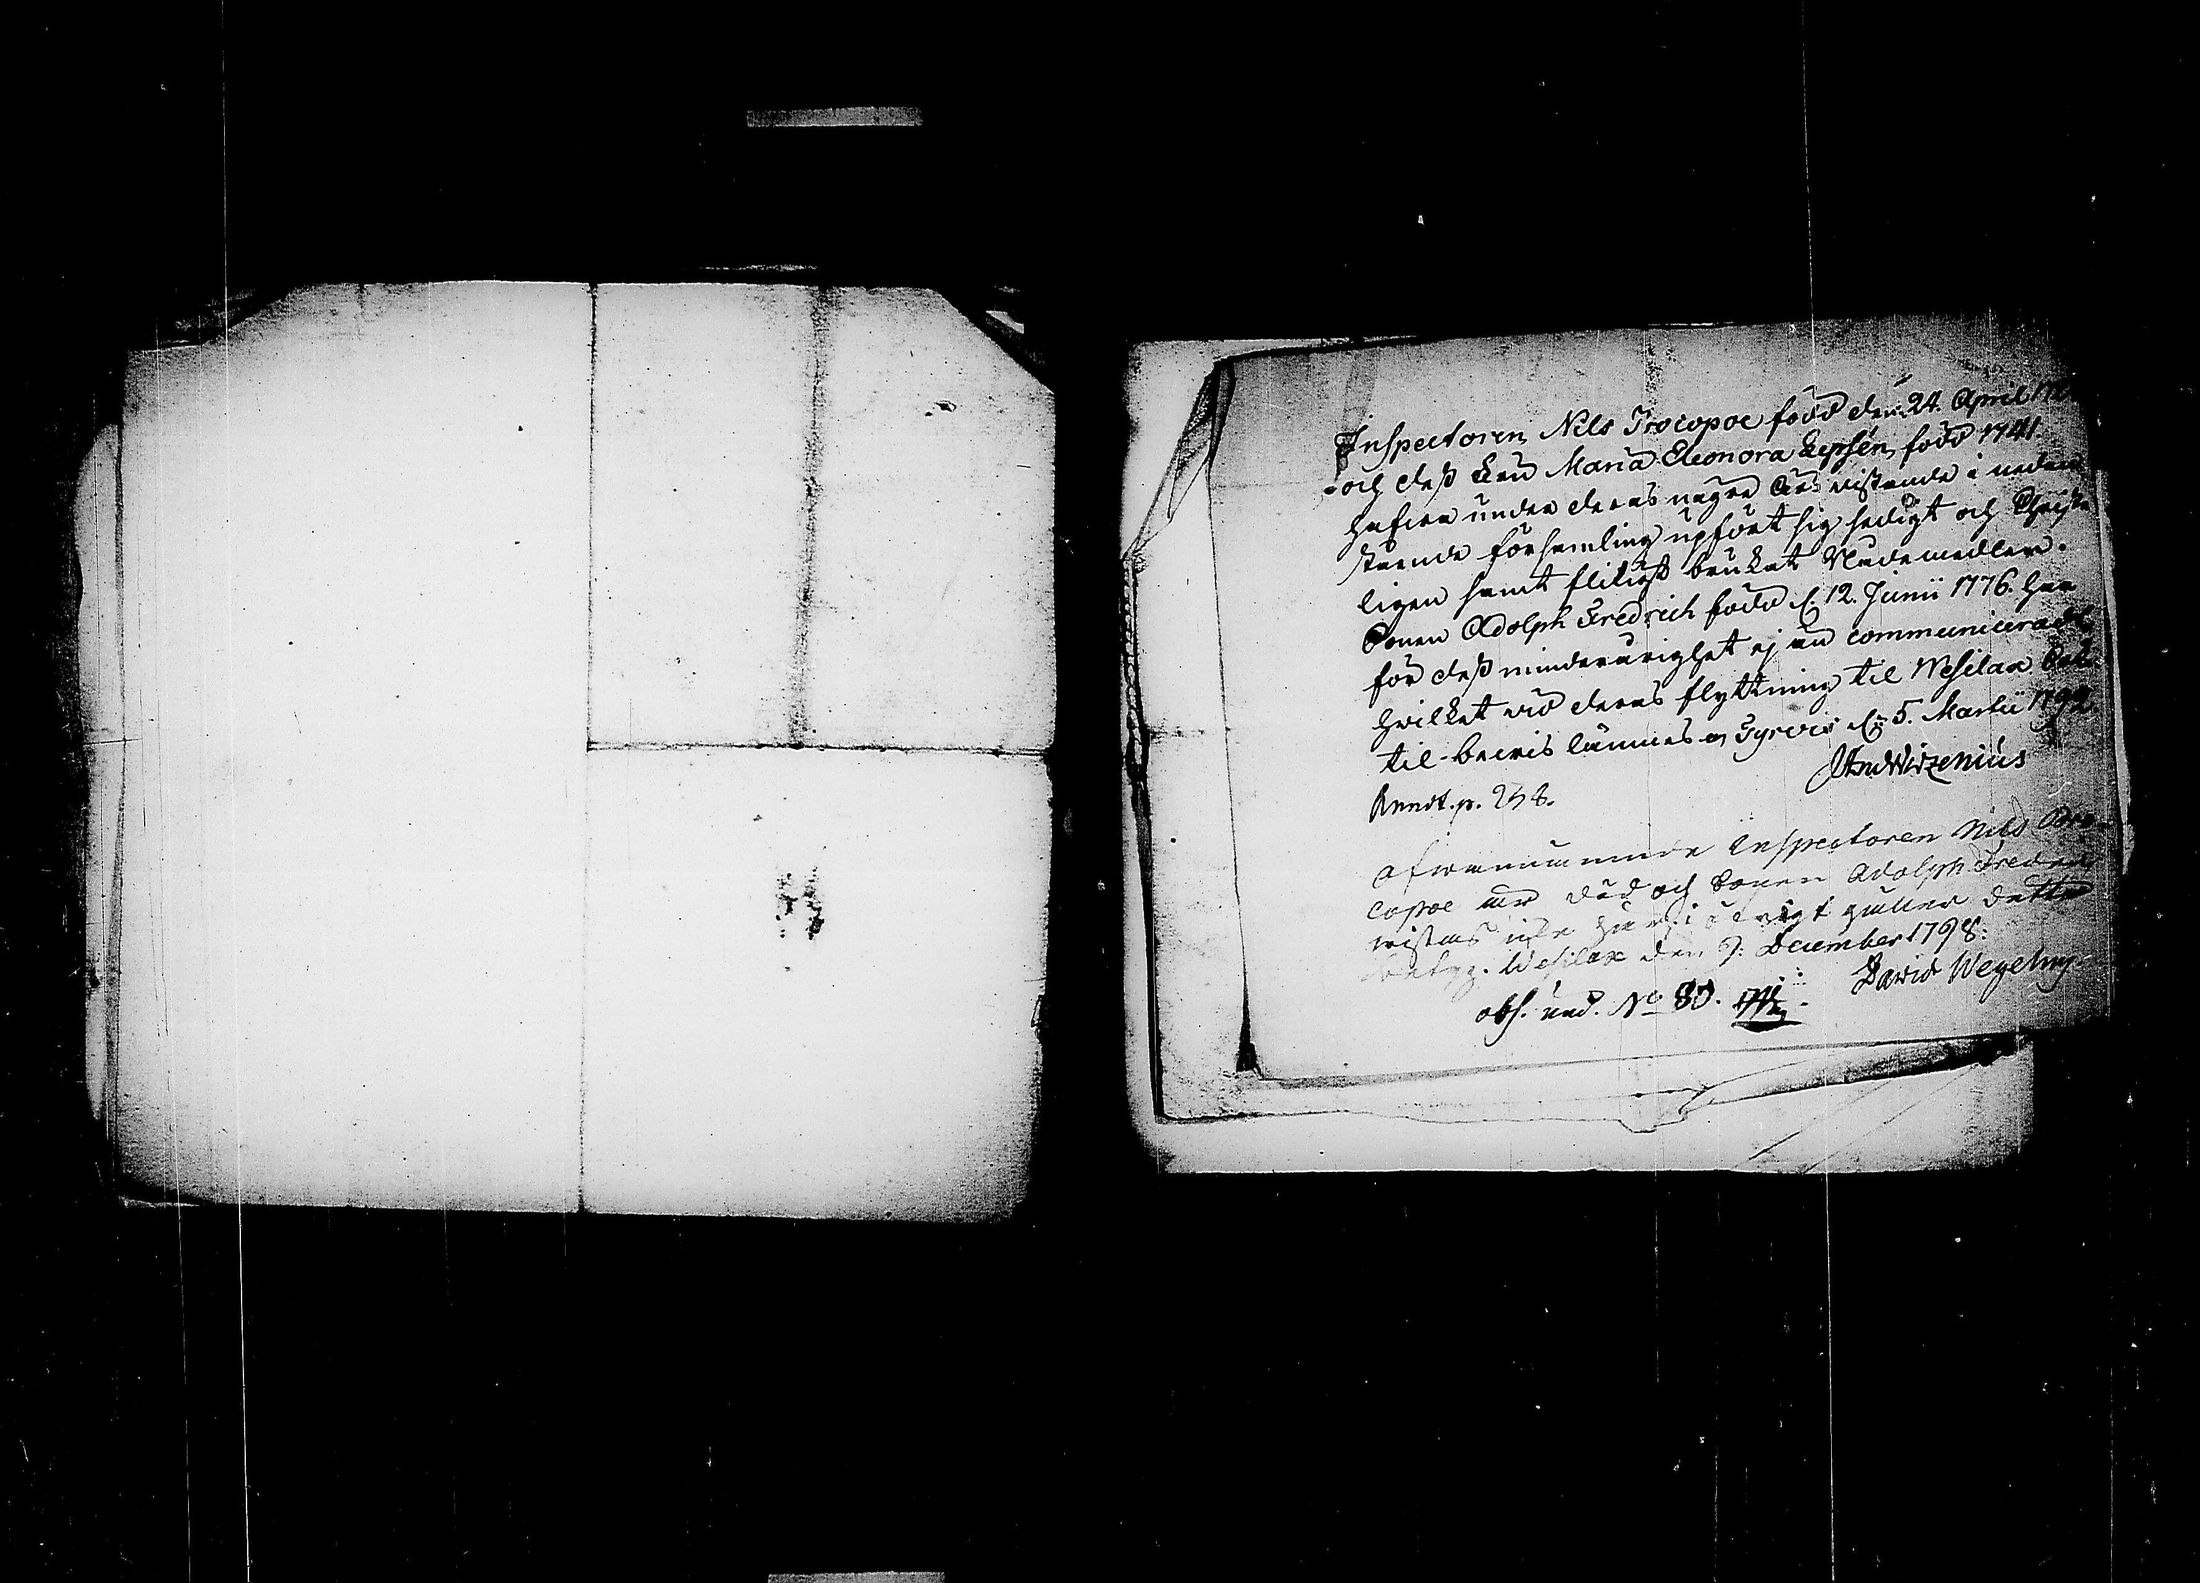 Inspectoren Nils Procopoe född den 24. April 17
och dess Fru Maria Eleonora Lepsén, född 1741.
hafwa under deras några års vistande i nedan
stående församling upfört sig sedigt och Christe
ligen samt flitigt brukat Nådemedlen.
Sonen Adolph Fredrich född d. 12. Junii 1776. har
för dess minderårighet ej än communicerat,
hvilket vid deras flyttning til Wesilax
til bewis lämnas Gyrvis d. 5. Martii 1792.
And Wirzenius
Annot. p. 258.
Ofwannämnde Inspectoren Nils Pro-
copoe är död och Sonen Adolph Fredr
wistas icke här; i öfrigt gäller detta
betyg. Wesilax den 9: December 1798:
David Wegelius
obs. und. No 80.